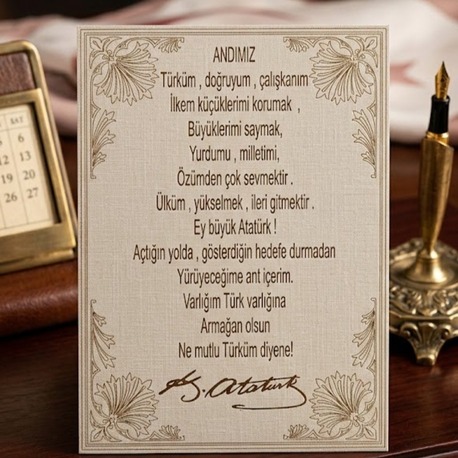 SAT
5
6
12
13
19
20
26
27
ANDIMIZ
Türküm , doğruyum , çalışkanım
İlkem küçüklerimi korumak ,
Büyüklerimi saymak,
Yurdumu , milletimi,
Özümden çok sevmektir .
Ülküm , yükselmek , ileri gitmektir .
Ey büyük Atatürk !
Açtığın yolda , gösterdiğin hedefe durmadan
Yürüyeceğime ant içerim.
Varlığım Türk varlığına
Armağan olsun
Ne mutlu Türküm diyene!
K. Atatürk